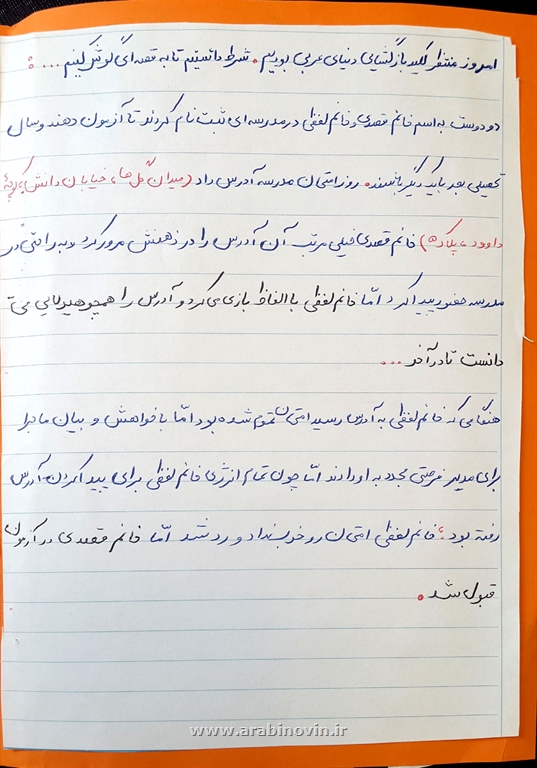 امروز منتظر کلید بازگشایی دنیای عربی بودیم. شرط دانستیم تا به قصه ای گوش کنیم ....:
دو دوست به اسم خانم قصدی و خانم لفظی در مدرسه ای ثبت نام کردند تا آزمون دهند و سال
تحصیلی بعد با یکدیگر باشند. روز امتحان مدرسه آدرس داد (میدان گل ها، خیابان دانش، کوچهٔ
داوود، پلاک ۵) خانم قصدی خیلی مرتب آن آدرس را در ذهنش مرور کرد و به راحتی در
مدرسه حضور پیدا کرد امّا خانم لفظی با الفاظ بازی می کرد و آدرس را همچو هیولایی می
دانست تا در آخر ...
هنگامی که خانم لفظی به آدرس رسید امتحان تموم شده بود امّا با خواهش و بیان ماجرا
برای مدیر فرصتی مجدد به او دادند امّا چون تمام انرژی خانم لفظی برای پیدا کردن آدرس
رفته بود؛ خانم لفظی امتحان رو خوب نداد و رد شد امّا خانم قصدی در آزمون
قبول شد.
www.arabinovin.ir